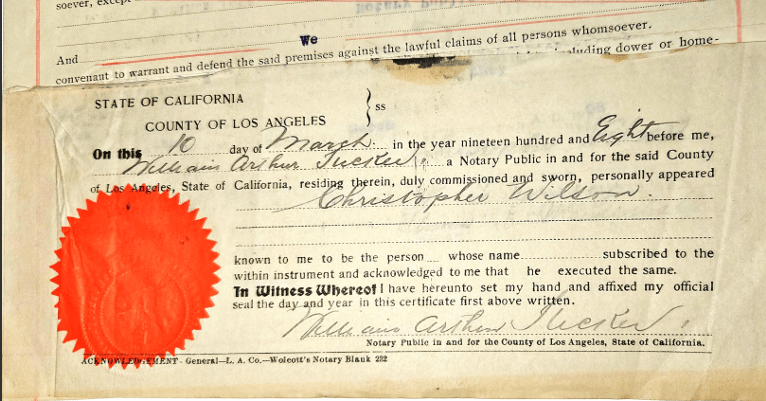 soever, except
We
And
convenant to warrant and defend the said premises against the lawful claims of all persons whomsoever.
including dower or home-
STATE OF CALIFORNIA
COUNTY OF LOS ANGELES } ss
On this 10 day of March in the year nineteen hundred and Eight before me,
William Arthur Tucker, a Notary Public in and for the said County
of Los Angeles, State of California, residing therein, duly commissioned and sworn, personally appeared
Christopher Wilson.
known to me to be the person whose name subscribed to the
within instrument and acknowledged to me that he executed the same.
In Witness Whereof I have hereunto set my hand and affixed my official
seal the day and year in this certificate first above written.
William Arthur Tucker
Notary Public in and for the County of Los Angeles, State of California.
ACKNOWLEDGEMENT - General—L. A. Co.—Wolcott's Notary Blank 232